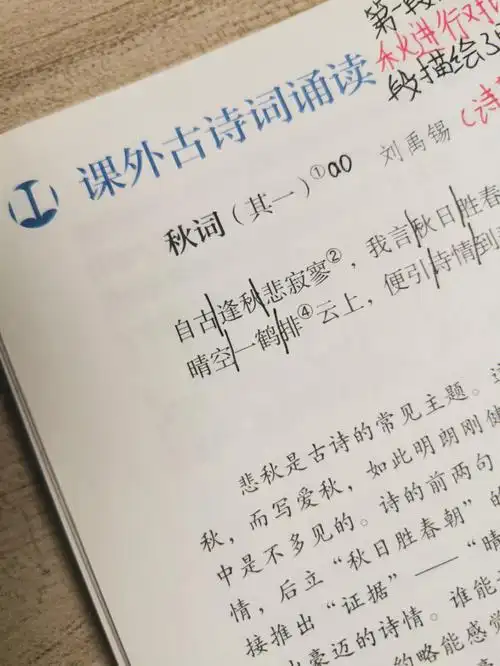 第一段
秋进行对
段描绘了
课外古诗词诵读
秋词（其一）① ao 刘禹锡（诗
自古逢秋悲寂寥②，我言秋日胜春
晴空一鹤排④云上，便引诗情到
悲秋是古诗的常见主题。
秋，而写爱秋，如此明朗刚健
中是不多见的。诗的前两句
情，后立“秋日胜春朝”的
接推出“证据”——“晴
豪迈的诗情。谁能
的略能感觉